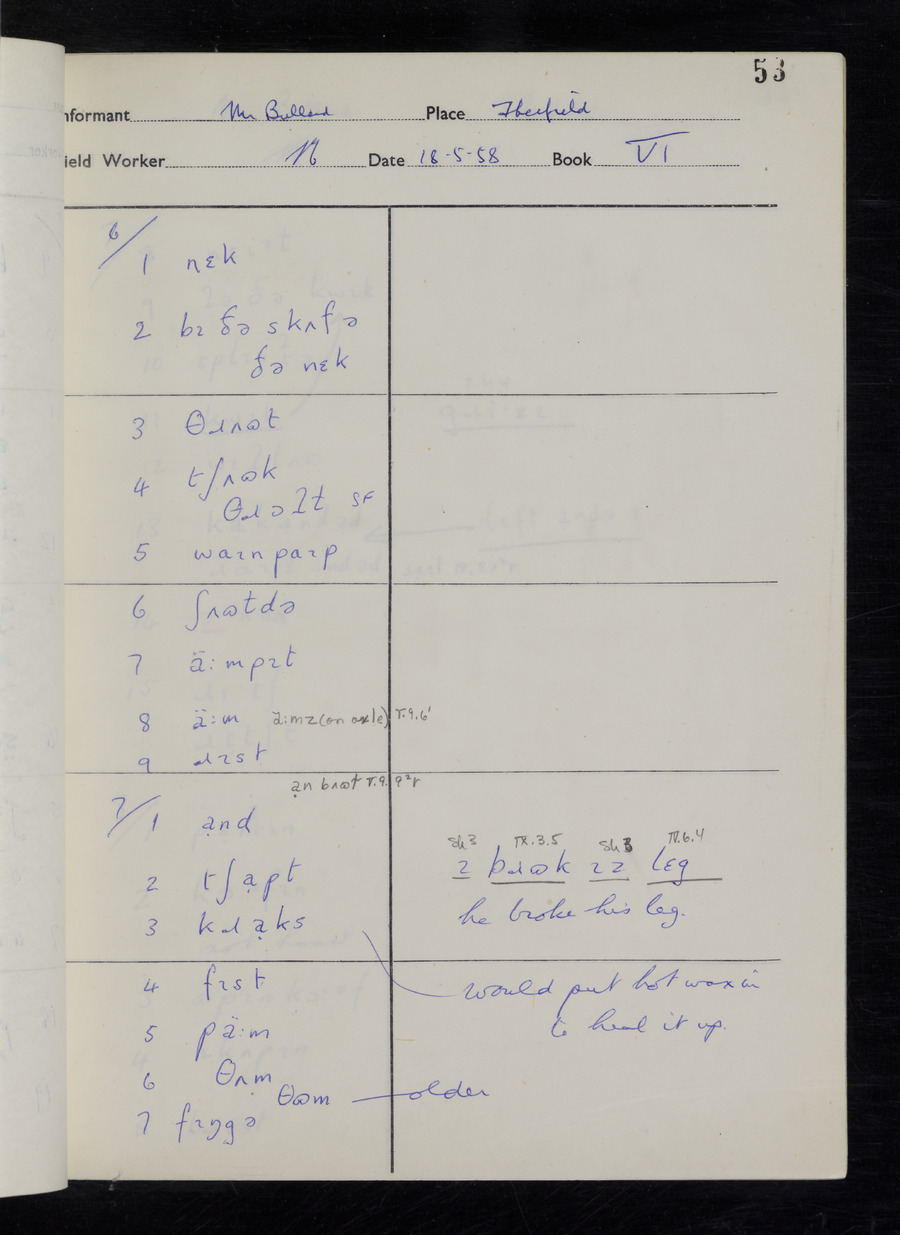 53
nformant Mr Bullard Place Therfield
ield Worker Date 18-5-58 Book VI
6/
1 nɛk
2 bɪ ðə skʌf ə
ðə nɛk
3 θɹʌɷt
4 tʃʌɷk
θɹɔʔt SF
5 waɪnpaɪp
6 ʃʌɷtdə
7 ä:mpɪt
8 ä:m ä:mz (on axle) I.9.6'
9 ɹɪst
7/ ạn bʌɷt I.9.9²r
1 ạnd
2 tʃạpt
3 kɹạks
Sh3 IX.3.5 Sh3 VI.6.4
ɪ bɹɷk ɪz lɛg
he broke his leg.
would put hot wax in
to heal it up.
4 fɪst
5 pä:m
6 θʌm
θɷm — older
7 fɪŋgə